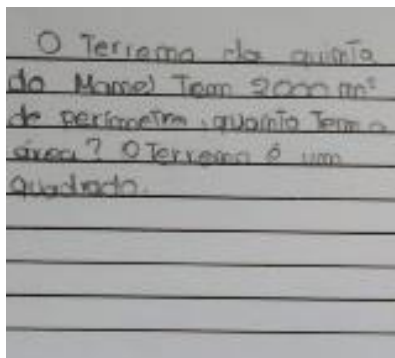 O Terreno da quinta
do Manel Tem 2000 m²
de perímetro, quanto Tem a
área? O Terreno é um
quadrado.